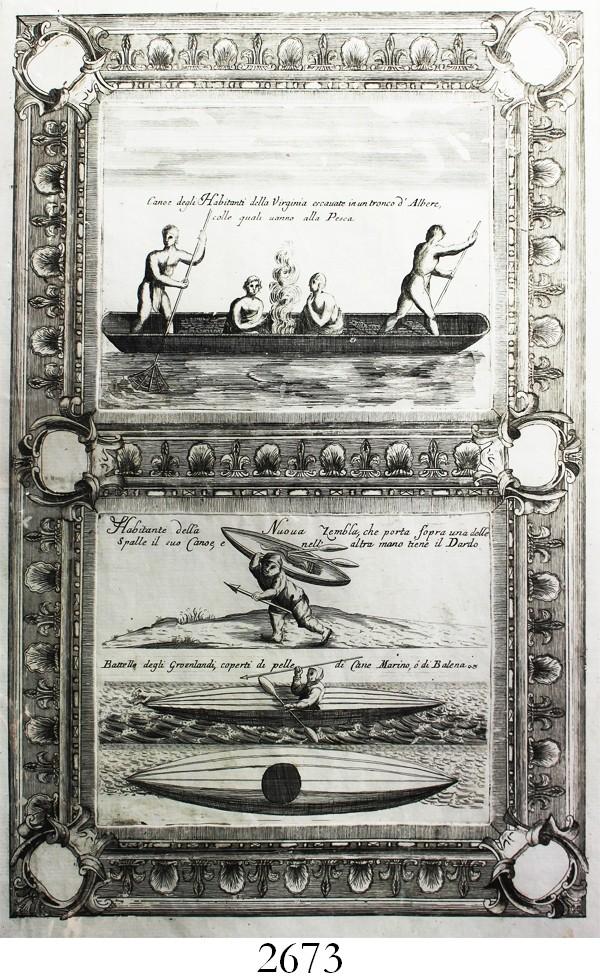 Canoe degli Habitanti della Virginia escauate in un tronco d'Albere,
colle quali uanno alla Pesca
Habitante della Nuoua Zembla, che porta sopra una delle
Spalle il suo Canoe, e nell' altra mano tiene il Dardo
Battelle degli Groenlandi, coperti di pelle di Cane Marino, ò di Balena
2673